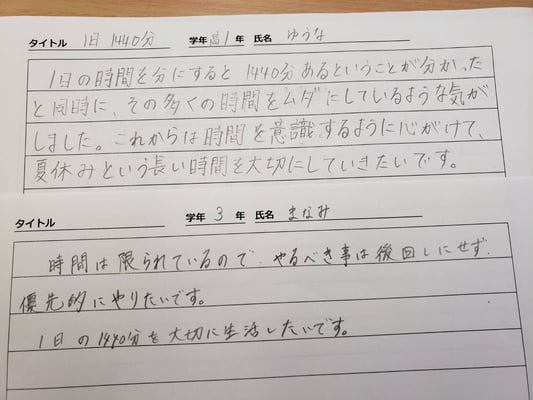 タイトル 1日 1440分 学年 高1 年 氏名 ゆうな
1日の時間を分にすると 1440分あるということが分かった
と同時に、その多くの時間をムダにしているような気が
しました。これからは時間を意識するように心がけて、
夏休みという長い時間を大切にしていきたいです。
タイトル 学年 3 年 氏名 まなみ
時間は限られているので、やるべき事は後回しにせず、
優先的にやりたいです。
1日の1440分を大切に生活したいです。